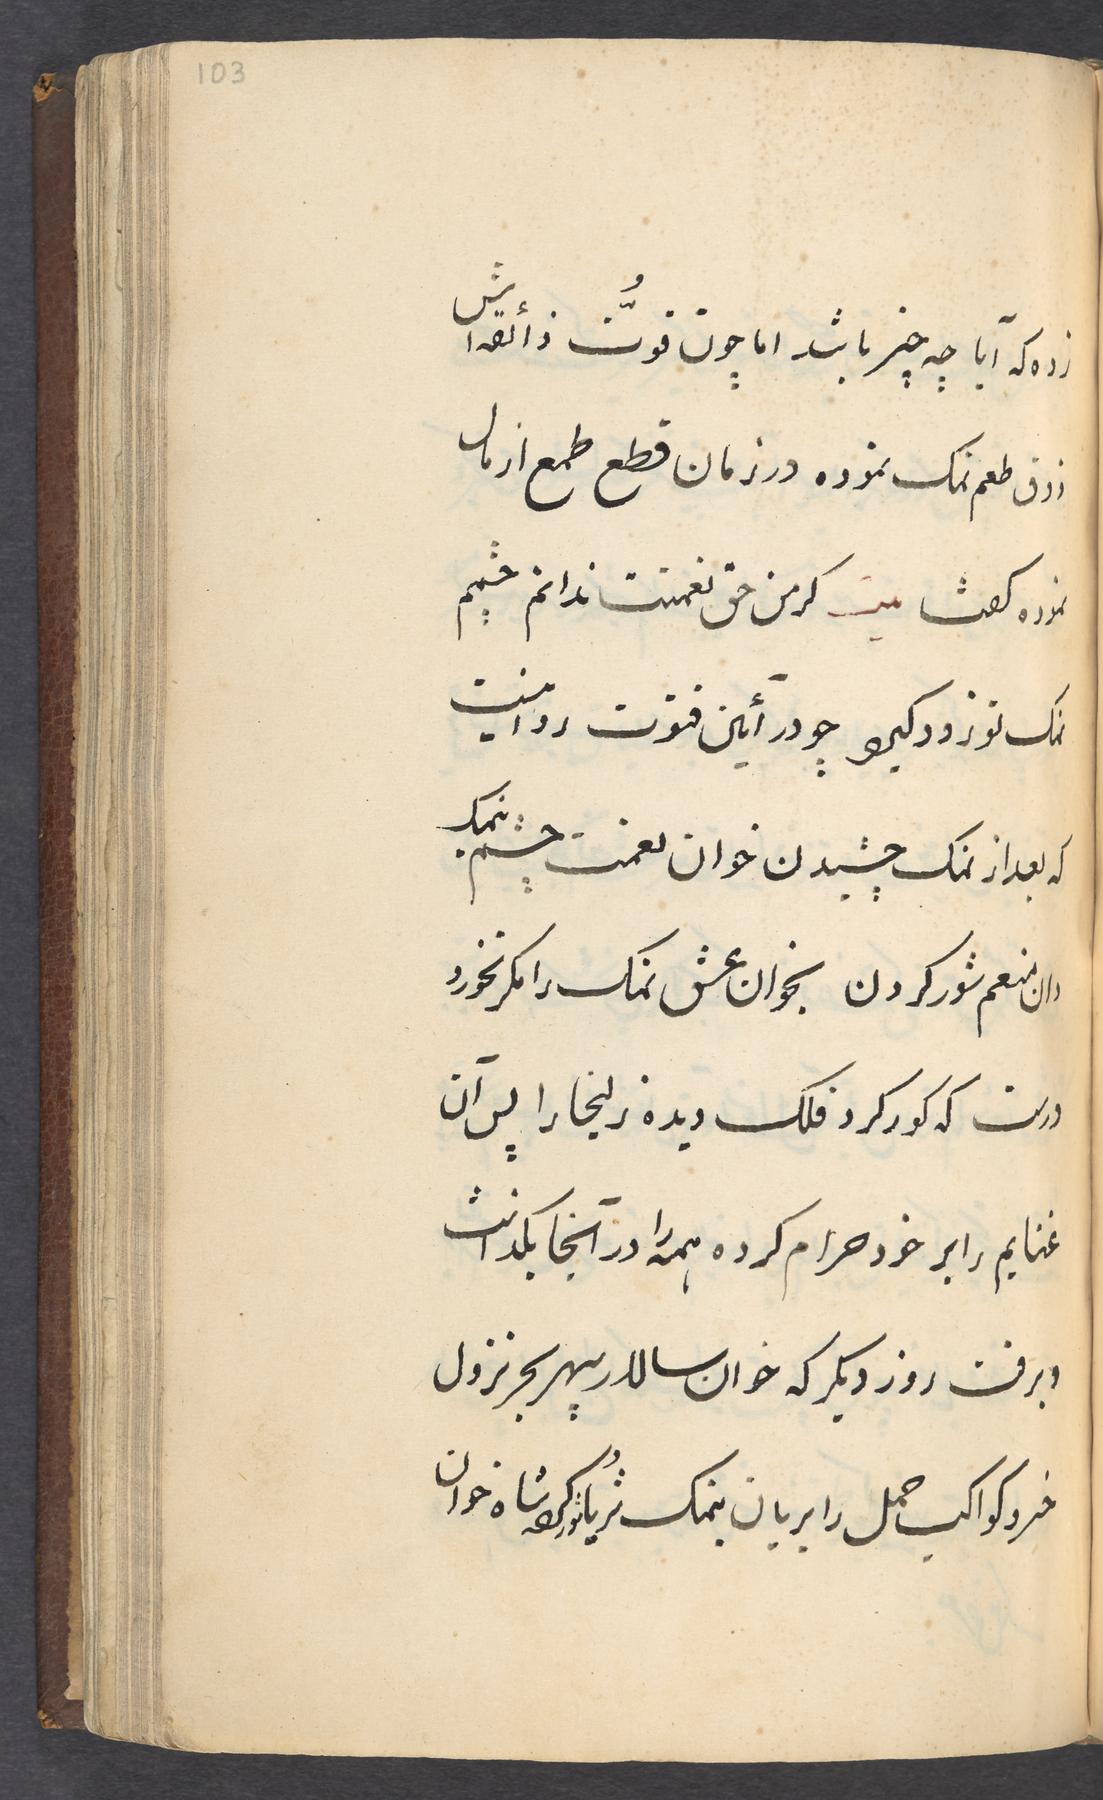 103
زده که آیا چه چیز باشد اما چون قوّت ذائقه‌اش
ذوق طعم نمک نموده در زمان قطع طمع از مال
نموده گفت بیت کر من حق نعمتت ندانم چشمم
نمک تو زود کیرد چو در آئین فتوت روا نیست
که بعد از نمک چشیدن خوان نعمت چشم نمک
دان منعم شور کردن بخوان عشق نمک را مکر نخورد
درست که کور کرد فلک دیده زلیخا را پس آن
غنایم را بر خود حرام کرده همه را در آنجا بگذاشت
و برفت روز دیکر که خوان سالار سپهر بجر نزول
خسرو کواکب حمل را بریان بنمک ثریا خوان